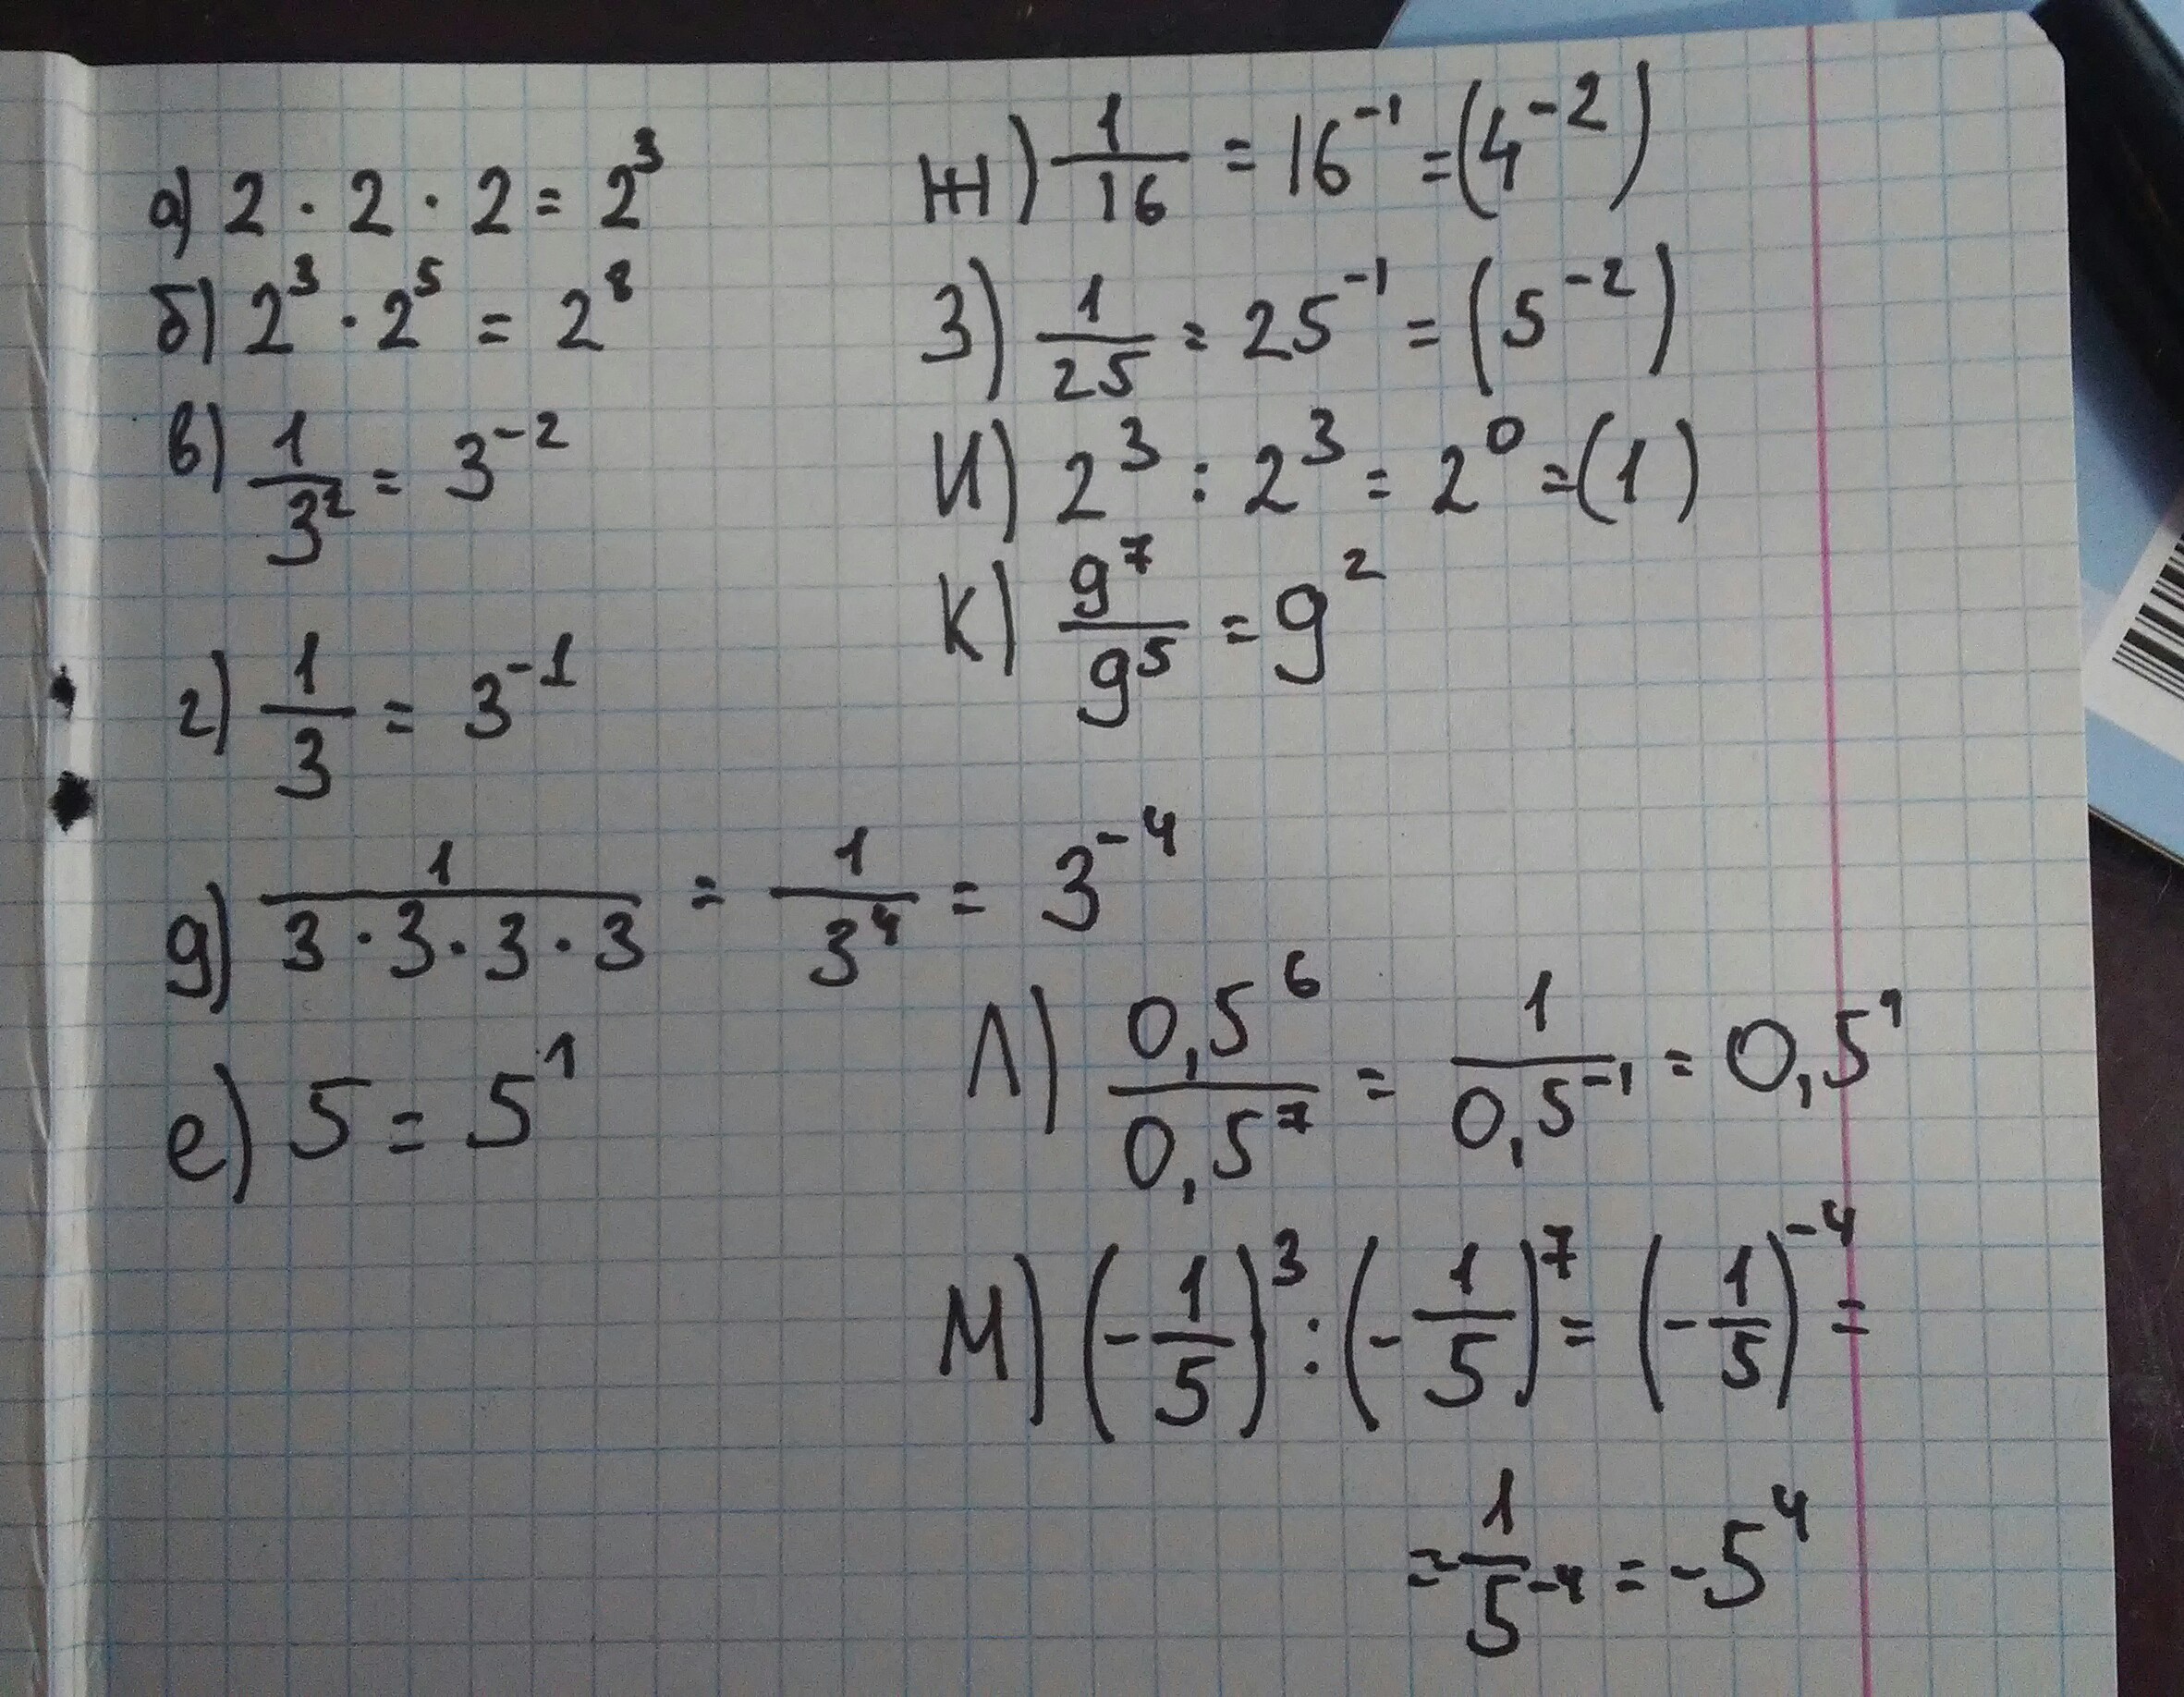 а) 2 · 2 · 2 = 2³
б) 2³ · 2⁵ = 2⁸
в) 1/3² = 3⁻²
г) 1/3 = 3⁻¹
д) 1/(3 · 3 · 3 · 3) = 1/3⁴ = 3⁻⁴
е) 5 = 5¹
Ж) 1/16 = 16⁻¹ = (4⁻²)
З) 1/25 = 25⁻¹ = (5⁻²)
И) 2³ : 2³ = 2⁰ = (1)
К) 9⁷/9⁵ = 9²
Л) 0,5⁶/0,5⁷ = 1/0,5⁻¹ = 0,5¹
М) (-1/5)³ : (-1/5)⁷ = (-1/5)⁻⁴ =
= -1/5⁻⁴ = -5⁴